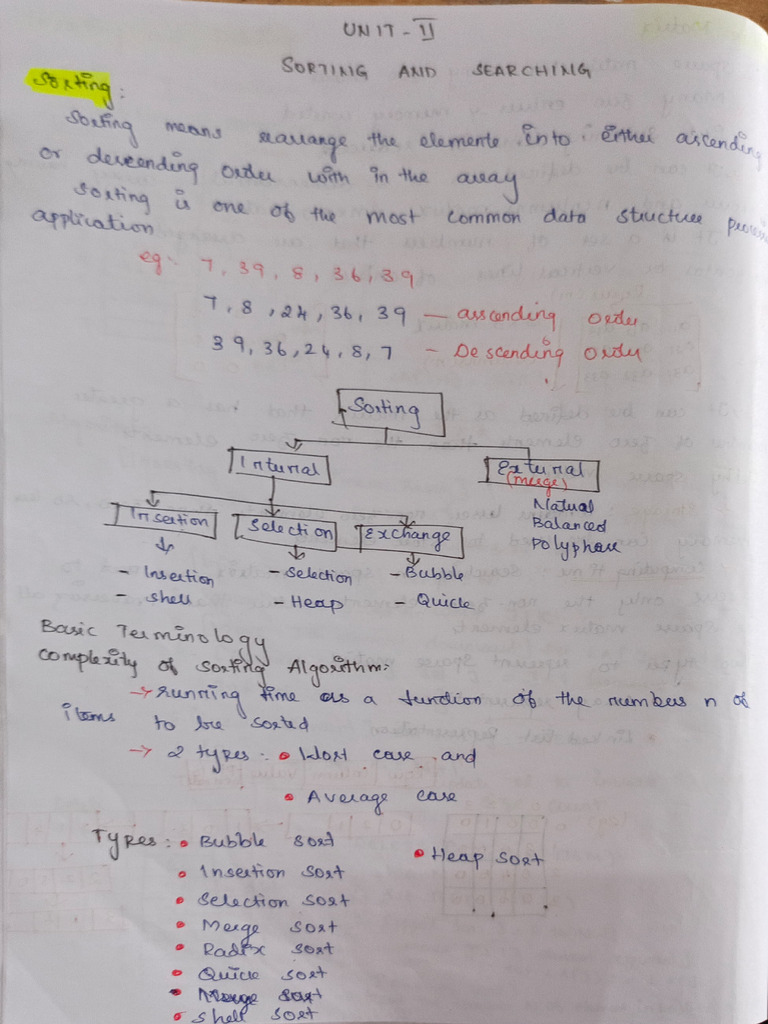 UNIT - II
SORTING AND SEARCHING
Sorting:
Sorting means rearrange the elements into either ascending
or descending order with in the array
Sorting is one of the most common data structure
application
eg:- 7, 39, 8, 36, 39
7, 8, 24, 36, 39 — ascending order
39, 36, 24, 8, 7 - Descending order
Sorting
Internal External
(merge)
Natual
Balanced
Polyphase
Insertion Selection Exchange
- Insertion - Selection - Bubble
- Shell - Heap - Quick
Basic Terminology
Complexity of Sorting Algorithm:
→ running time as a function of the numbers n of
items to be sorted
→ 2 types: • Worst case and
• Average case
Types: • Bubble sort • Heap sort
• Insertion sort
• Selection sort
• Merge sort
• Radix sort
• Quick sort
• Merge sort
• Shell sort